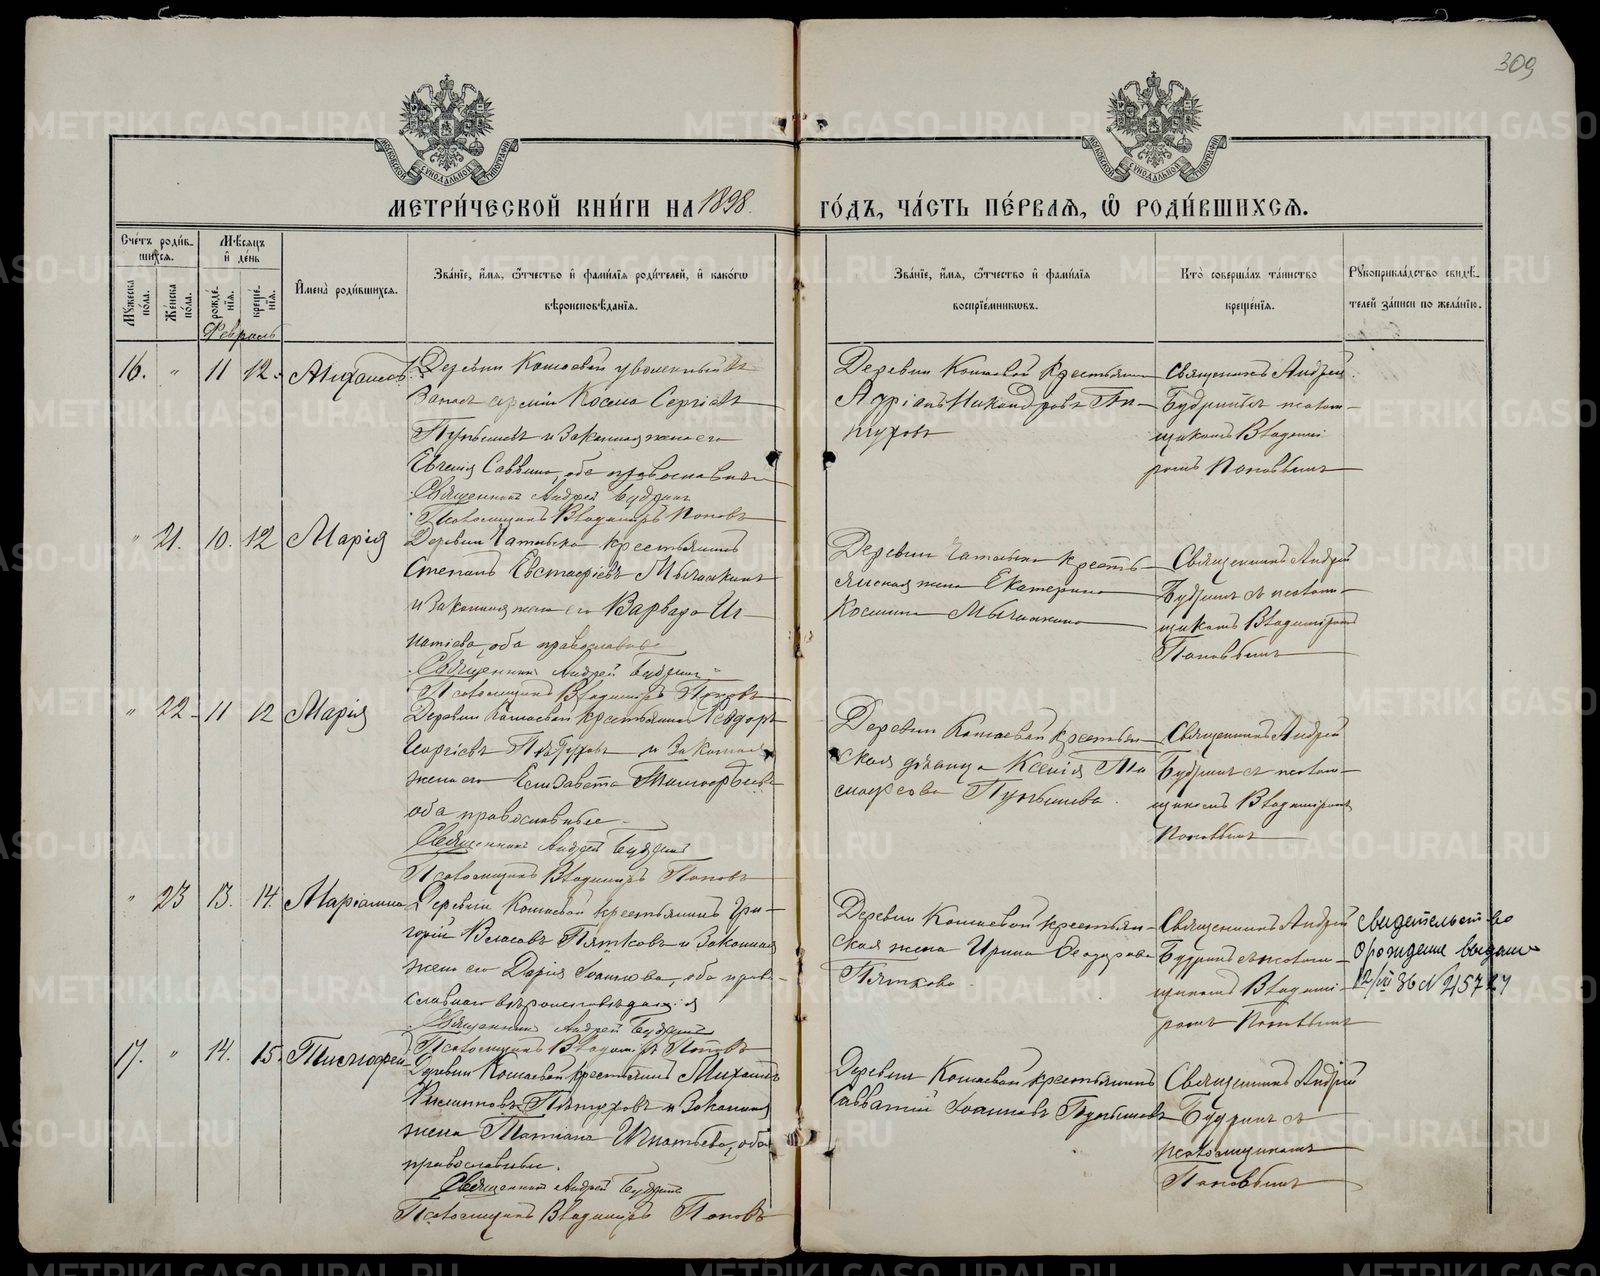 309
МОСКОВСКОЙ СУНОДАЛЬНОЙ ТИПОГРАФІИ
МОСКОВСКОЙ СУНОДАЛЬНОЙ ТИПОГРАФІИ
МЕТРИ́ЧЕСКОЙ КНИ́ГИ НА 1898
ГО́ДЪ, ЧА́СТЬ ПЕ́РВАѦ, Ѡ҆ РОДИ́ВШИХСѦ.
Сче́тъ роди́в-
шихсѧ.
Мѣ́сѧцъ
и҆ де́нь
Мꙋ́жеска по́ла.
Же́нска по́ла.
рожде́-нїѧ.
креще́-нїѧ.
И҆мена̀ роди́вшихсѧ.
Зва́нїе, и҆́мѧ, ѻ҆́тчество и҆ фами́лїѧ роди́телей, и҆ како́гѡ
вѣроисповѣ́данїѧ.
Зва́нїе, и҆́мѧ, ѻ҆́тчество и҆ фами́лїѧ
воспрїе́мникѡвъ.
Кто̀ соверша́лъ та́инство
креще́нїѧ.
Рꙋкоприкла́дство свидѣ́-
телей за́писи по жела́нїю.
Февраль
16. " 11 12.
Деревни Кошаевой уволенный въ
запасъ арміи Косма Сергіевъ
и законная жена его
Саввина, оба православные
Священникъ Андрей Будринъ
Псаломщикъ Владиміръ Поповъ
Деревни Кошаевой крестьянинъ
Адріанъ Никандровъ Пѣ-
туховъ
Священникъ Андрей
Будринъ съ псалом-
щикомъ Владимі
ромъ Поповымъ
" 21. 10. 12 Марія
Деревни крестьянинъ
Степанъ Евстафіевъ
и законная жена его Варвара Иг-
натіева, оба православные
Священникъ Андрей Будринъ
Псаломщикъ Владиміръ Поповъ
Деревни кресть
янская жена Екатерина
Космина
Священникъ Андрей
Будринъ съ псалом-
щикомъ Владиміромъ
Поповымъ
" 22 11 12 Марія
Деревни Кошаевой крестьянинъ Ѳеодоръ
Георгіевъ Пѣтуховъ и законная
жена его Елисавета
оба православные
Священникъ Андрей Будринъ
Псаломщикъ Владиміръ Поповъ
Деревни Кошаевой крестьян-
ская дѣвица Ксенія
Священникъ Андрей
Будринъ съ псалом-
щикомъ Владиміромъ
Поповымъ
" 23 13. 14. Маріамна
Деревни Кошаевой крестьянинъ Гри-
горій Власовъ Пятковъ и законная
жена его Дарія Іоаннова, оба право-
славнаго вѣроисповѣданія
Священникъ Андрей Будринъ
Псаломщикъ Владиміръ Поповъ
Деревни Кошаевой крестьян-
ская жена Ирина Ѳеодорова
Пяткова
Священникъ Андрей
Будринъ съ псалом-
щикомъ Владимі-
ромъ Поповымъ
Свидетельство
о рождение выдано
12/III 36 N 215724
17. " 14. 15. Тимофей
Деревни Кошаевой крестьянинъ Михаилъ
Пѣтуховъ и законная
жена Татіана Игнатьева, оба
православные.
Священникъ Андрей Будринъ
Псаломщикъ Владиміръ Поповъ
Деревни Кошаевой крестьянинъ
Савватій Іоанновъ
Священникъ Андрей
Будринъ съ
псаломщикомъ
Поповымъ